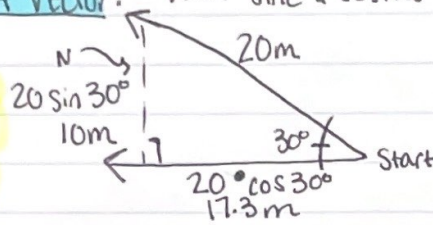 Vector.
20m
N
20 sin 30°
10m
30°
Start
20 • cos 30°
17.3 m